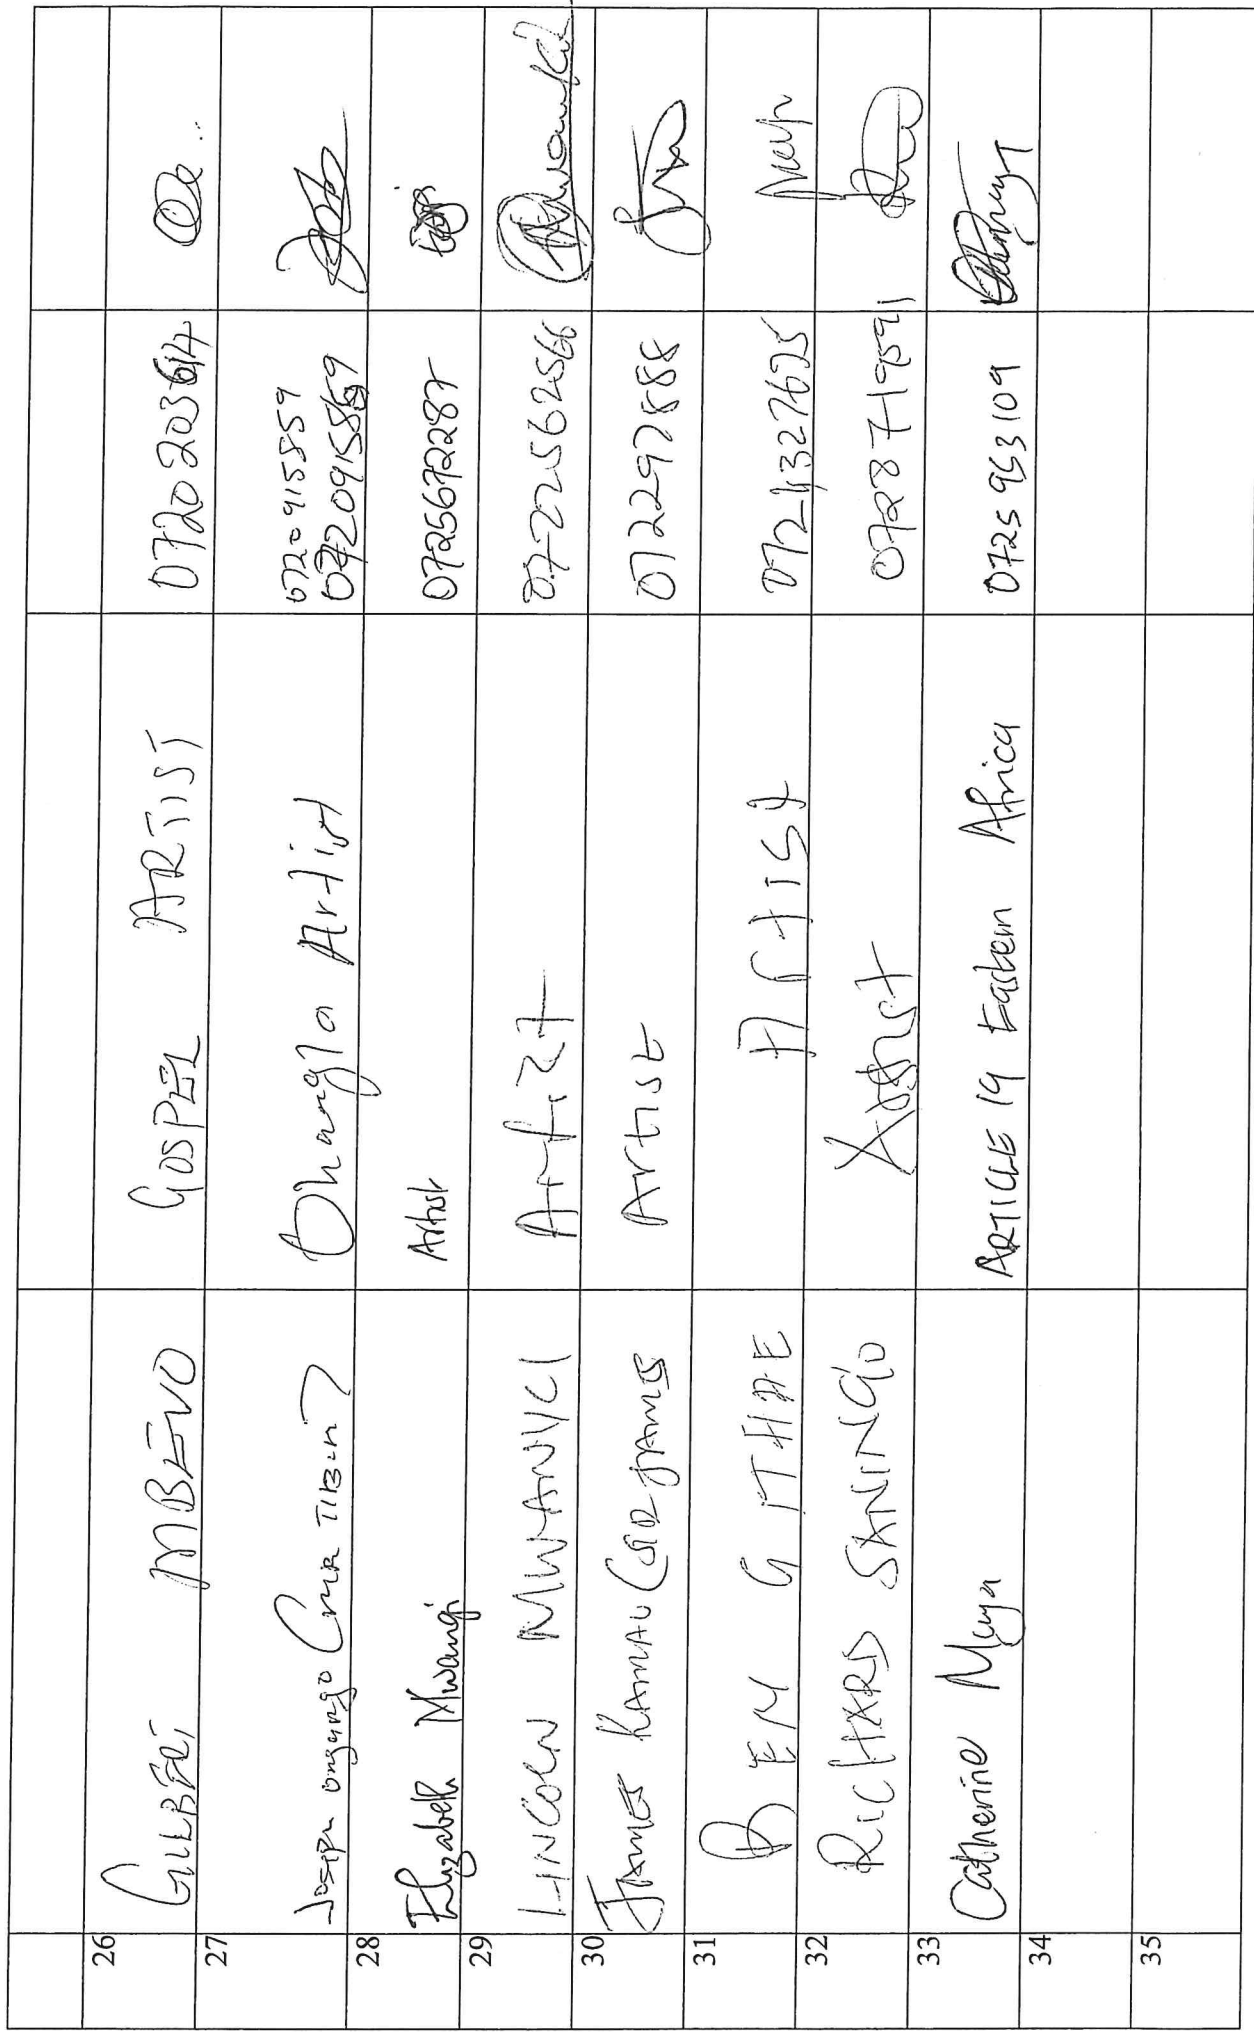 26 GILBERT MBEVO GOSPEL ARTIST 0720203614
27 Ohangla Artist 0720915859
0720915859
28 Elizabeth Mwangi Artist 0725672287
29 LINCOLN MWANYCI Artist 0722562566
30 JAMES KAMAU (SIR JAMES Artist 072297888
31 BEN GITHAE Artist
32 RICHARD SANINGO Artist 0728719591
33 Catherine Muya ARTICLE 19 Eastern Africa 0725953109
34
35